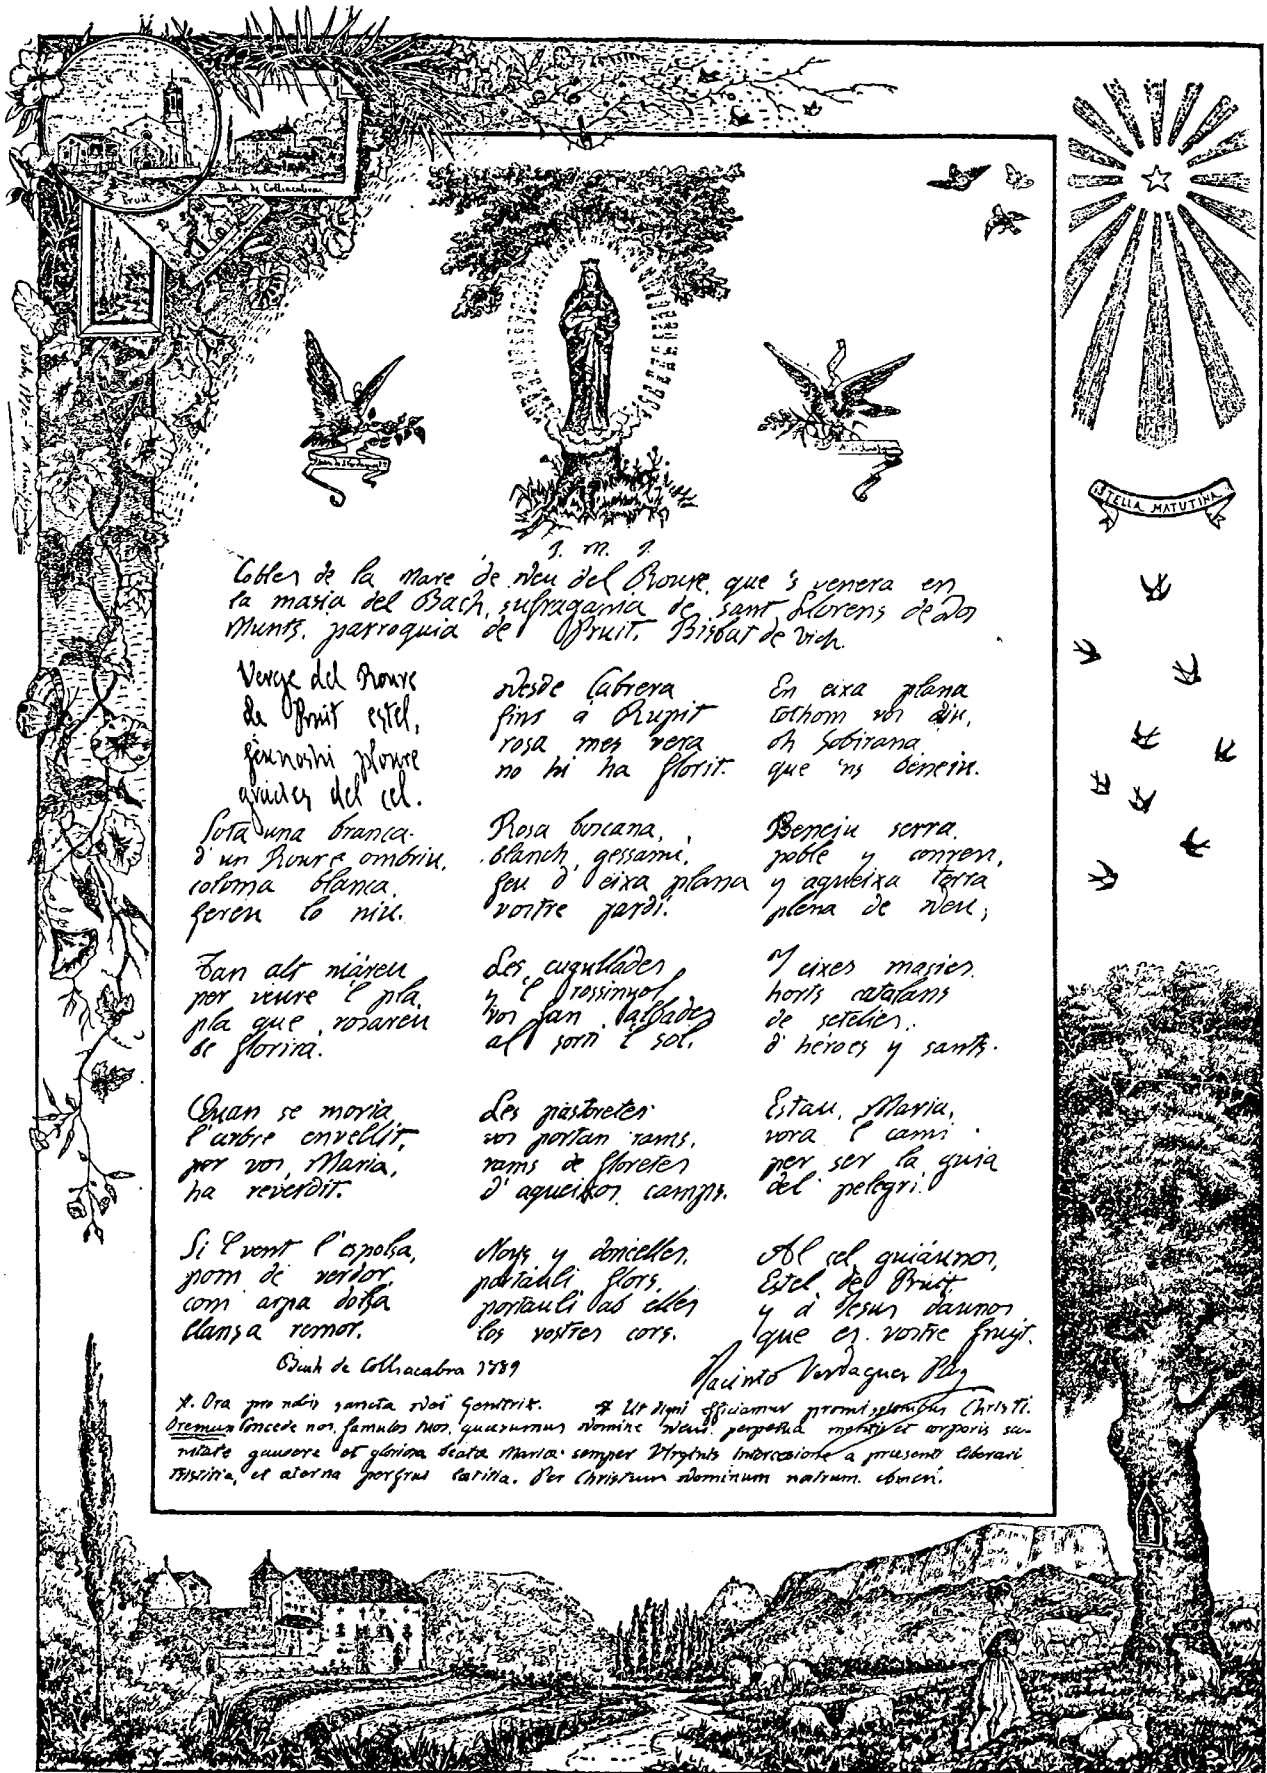 Pruit.
Bach de Collsacabra
STELLA MATUTINA
J. M. J.
Cobles de la Mare de Deu del Roure, que 's venera en
la masia del Bach, sufragania de sant Llorens de Dos
Munts, parroquia de Pruit, Bisbat de Vich.
Verge del Roure
de Pruit estel,
féunoshi ploure
gracies del cel.
Sota una branca
d' un Roure ombriu,
coloma blanca,
fereu lo niu.
Tan alt niáreu
per veure 'l pla,
pla que rosareu
se florirá.
Quan se moria
l' arbre envellit,
per vos, Maria,
ha reverdit.
Si 'l vent l' espolsa,
pom de verdor,
com arpa dolsa
llansa remor.
Desde Cabrera
fins á Rupit
rosa mes vera
no hi ha florit.
Rosa boscana,
blanch gessamí,
feu d' eixa plana
vostre jardí.
Les cugullades
y 'l rossinyol
vos fan albades
al sortí 'l sol.
Les pastoretes
vos portan rams,
rams de floretes
d' aqueixos camps.
Noys y doncelles,
portáuli flors,
portauli ab elles
los vostres cors.
En eixa plana
tothom vos diu,
oh Sobirana
que 'ns beneiu.
Beneiu serra,
poble y conreu,
y aqueixa terra
plena de Deu;
Y eixes masies
horts catalans
de
d' héroes y sants.
Estau, Maria,
vora 'l camí
per ser la guia
del pelegrí.
Al cel guiáunos,
Estel de Pruit
y á Jesus daunos
que es vostre fruyt.
Bach de Collsacabra 1889
Jacinto Verdaguer Pbre
℣. Ora pro nobis sancta Dei Genitrix. ℟ Ut digni efficiamur promissionibus Christi.
Oremus Concede nos famulos tuos, quaesumus Domine Deus, perpetua mentis et corporis sa-
nitate gaudere et gloriosa beata Maria semper Virginis intercesione a praesenti liberari
tristitia, et aterna perfrui latitia. Per Christum Dominum nostrum. Amen.